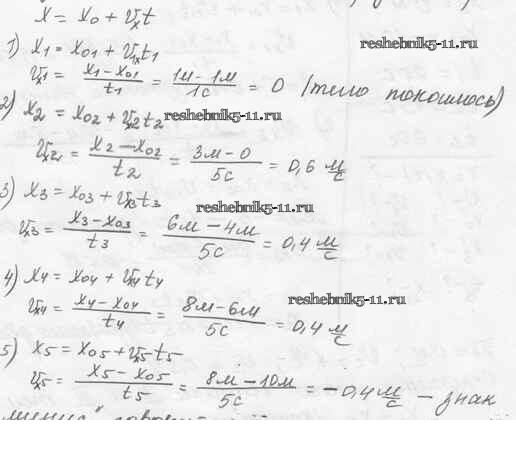 x = x₀ + vₓt
1) x₁ = x₀₁ + v₁ₓt₁
reshebnik5-11.ru
vₓ₁ = (x₁ – x₀₁)/t₁ = (1м – 1м)/1с = 0 (тело покоилось)
reshebnik5-11.ru
2) x₂ = x₀₂ + vₓ₂t₂
vₓ₂ = (x₂ – x₀₂)/t₂ = (3м – 0)/5с = 0,6 м/с
3) x₃ = x₀₃ + vₓ₃t₃
reshebnik5-11.ru
vₓ₃ = (x₃ – x₀₃)/t₃ = (6м – 4м)/5с = 0,4 м/с
4) x₄ = x₀₄ + vₓ₄t₄
reshebnik5-11.ru
vₓ₄ = (x₄ – x₀₄)/t₄ = (8м – 6м)/5с = 0,4 м/с
5) x₅ = x₀₅ + vₓ₅t₅
vₓ₅ = (x₅ – x₀₅)/t₅ = (8м – 10м)/5с = – 0,4 м/с – знак